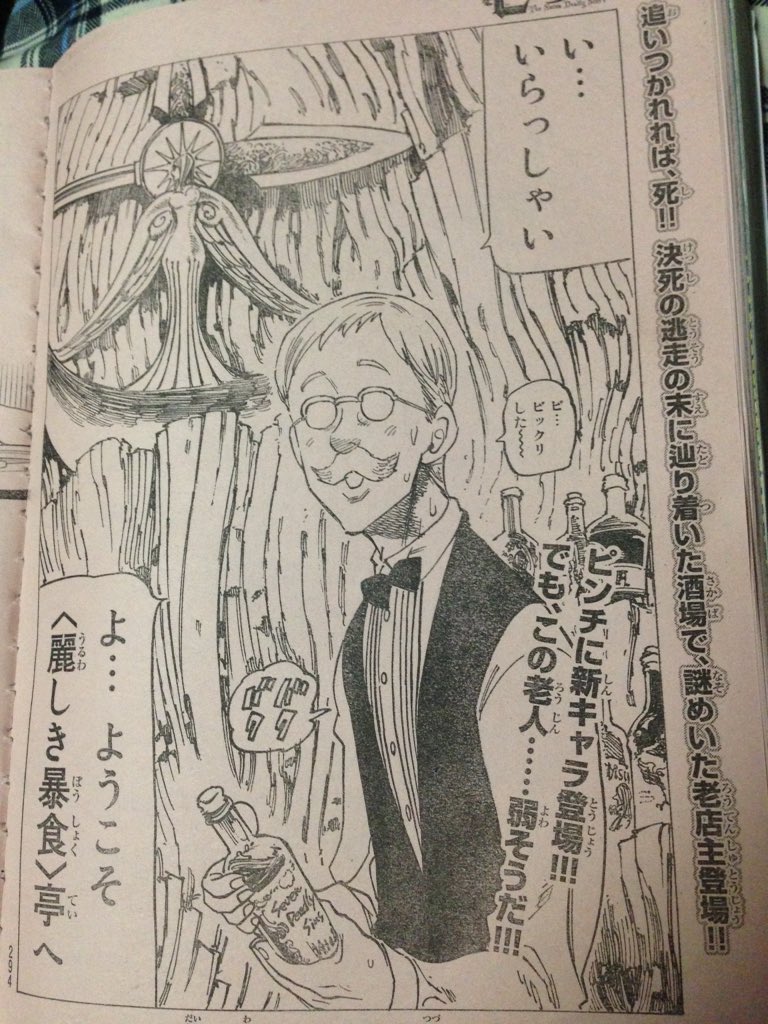 追いつかれれば、死!! 決死の逃走の末に辿り着いた酒場で、謎めいた老店主登場!!
い…
いらっしゃい
ビ…
ビックリ
した〜〜
ピンチに新キャラ登場!!!
でも、この老人……弱そうだ!!!
ドドドド
よ… ようこそ
〈麗しき暴食〉亭へ
Seven
Deadly
Sins
294